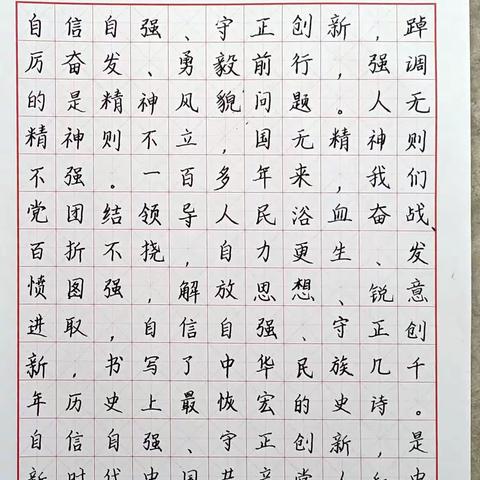 自信自强、守正创新，踔
厉奋发、勇毅前行，强调
的是精神风貌问题。人无
精神则不立，国无精神则
不强。一百多年来，我们
党团结领导人民浴血奋战、
百折不挠，自力更生、发
愤图强，解放思想、锐意
进取，自信自强、守正创
新，书写了中华民族几千
年历史上最恢宏的史诗。
自信自强、守正创新，是
新时代中国共产党人